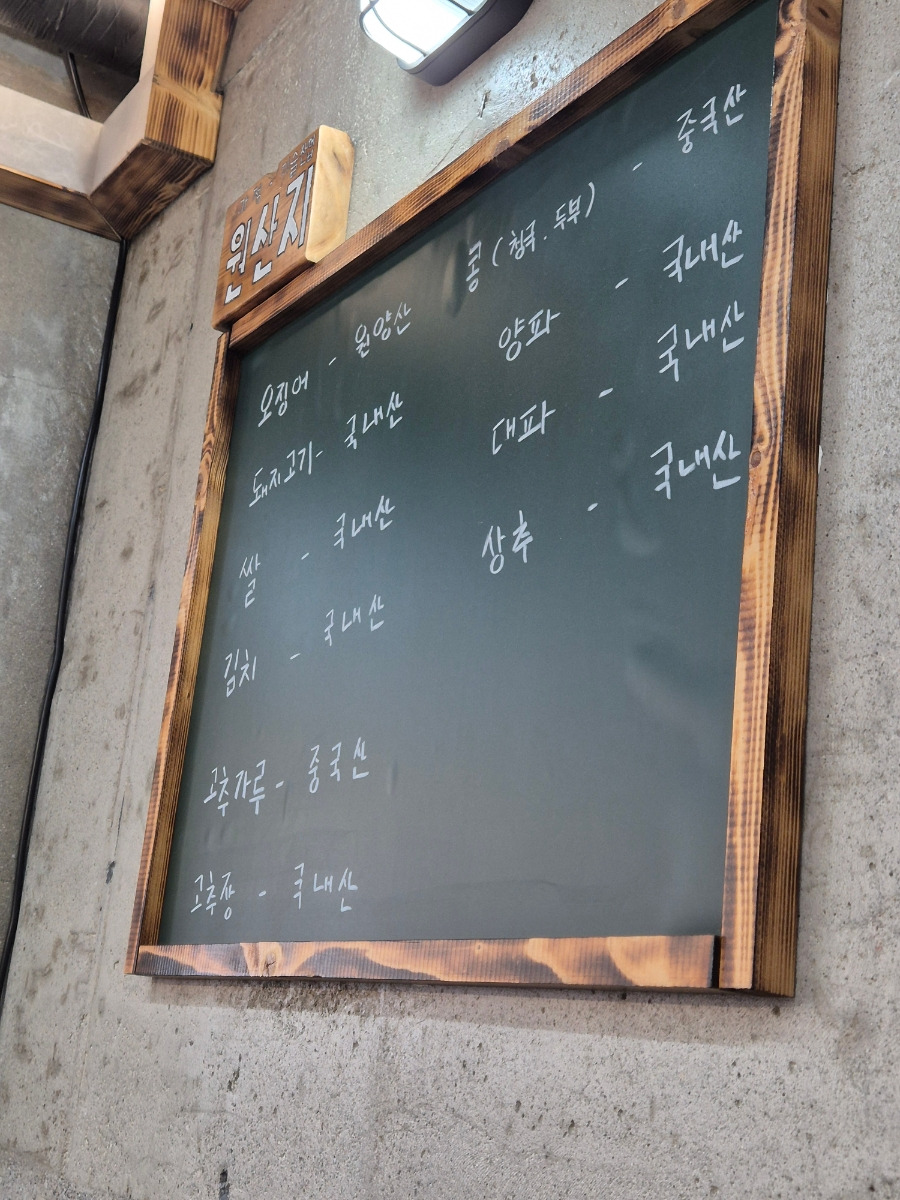 원산지
오징어 - 원양산
돼지고기 - 국내산
쌀 - 국내산
김치 - 국내산
고추가루 - 중국산
고추장 - 국내산
콩 (청국·두부) - 중국산
양파 - 국내산
대파 - 국내산
상추 - 국내산